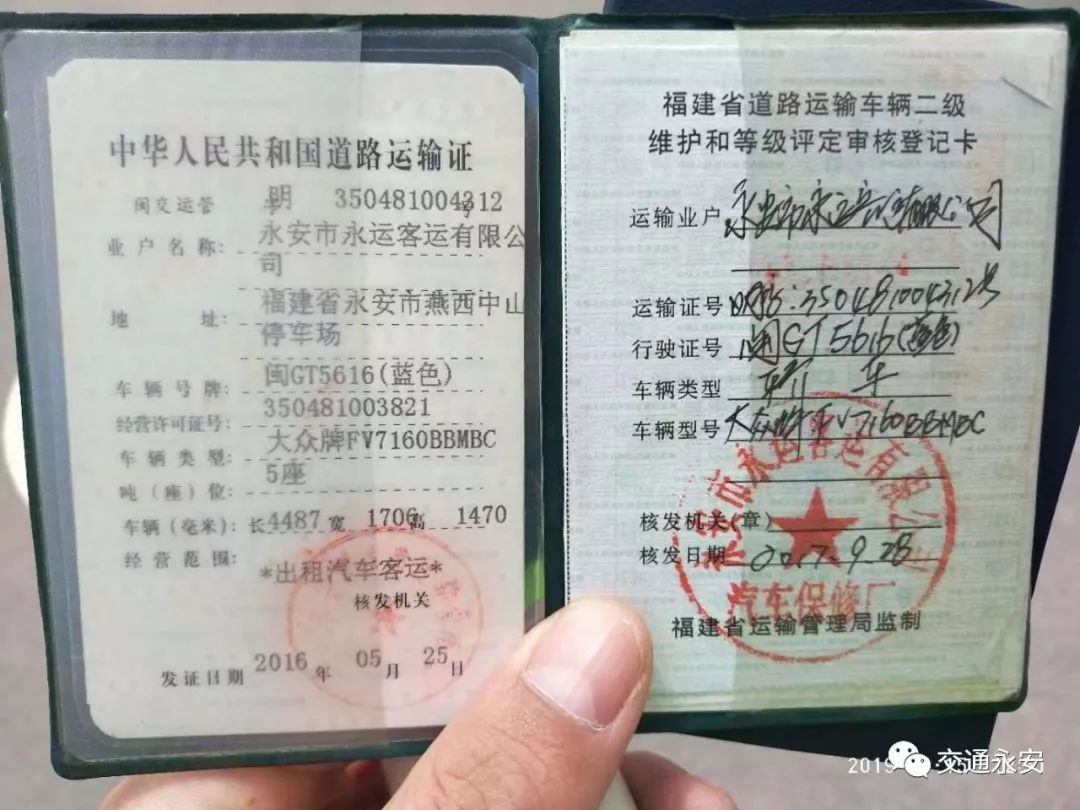 中华人民共和国道路运输证
闽交运管 明 350481004312 号
业户名称: 永安市永运客运有限公
司
地 址: 福建省永安市燕西中山
停车场
车辆号牌: 闽GT5616(蓝色)
经营许可证号: 350481003821
车辆类型: 大众牌FV7160BBMBC
吨（座）位: 5座
车辆（毫米）: 长4487 宽 1706 高 1470
经营范围:
*出租汽车客运*
核发机关
发证日期 2016 年 05 月 25 日
福建省道路运输车辆二级
维护和等级评定审核登记卡
运输业户 永安市永运客运有限公司
运输证号 350481004312号
行驶证号 闽GT5616(蓝色)
车辆类型 轿车
车辆型号 大众牌FV7160BBMBC
核发机关(章)
核发日期 2017.9.28
永安市永运客运有限公司
汽车保修厂
福建省运输管理局监制
2019
交通永安